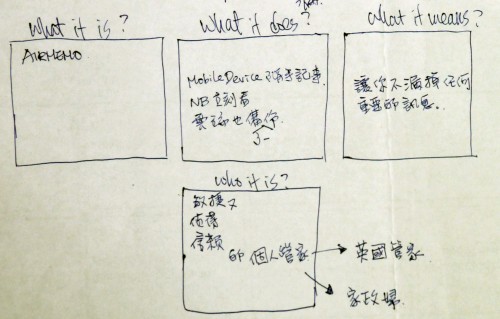 What it is?
AIRMEMO
What it does?
Mobile Device 隨手記事.
NB 立刻看
雲端也備份.
What it means?
讓你不漏掉任何
重要的訊息.
who it is?
敏捷又
值得
信賴
的 個人管家
英國管家
家政婦.